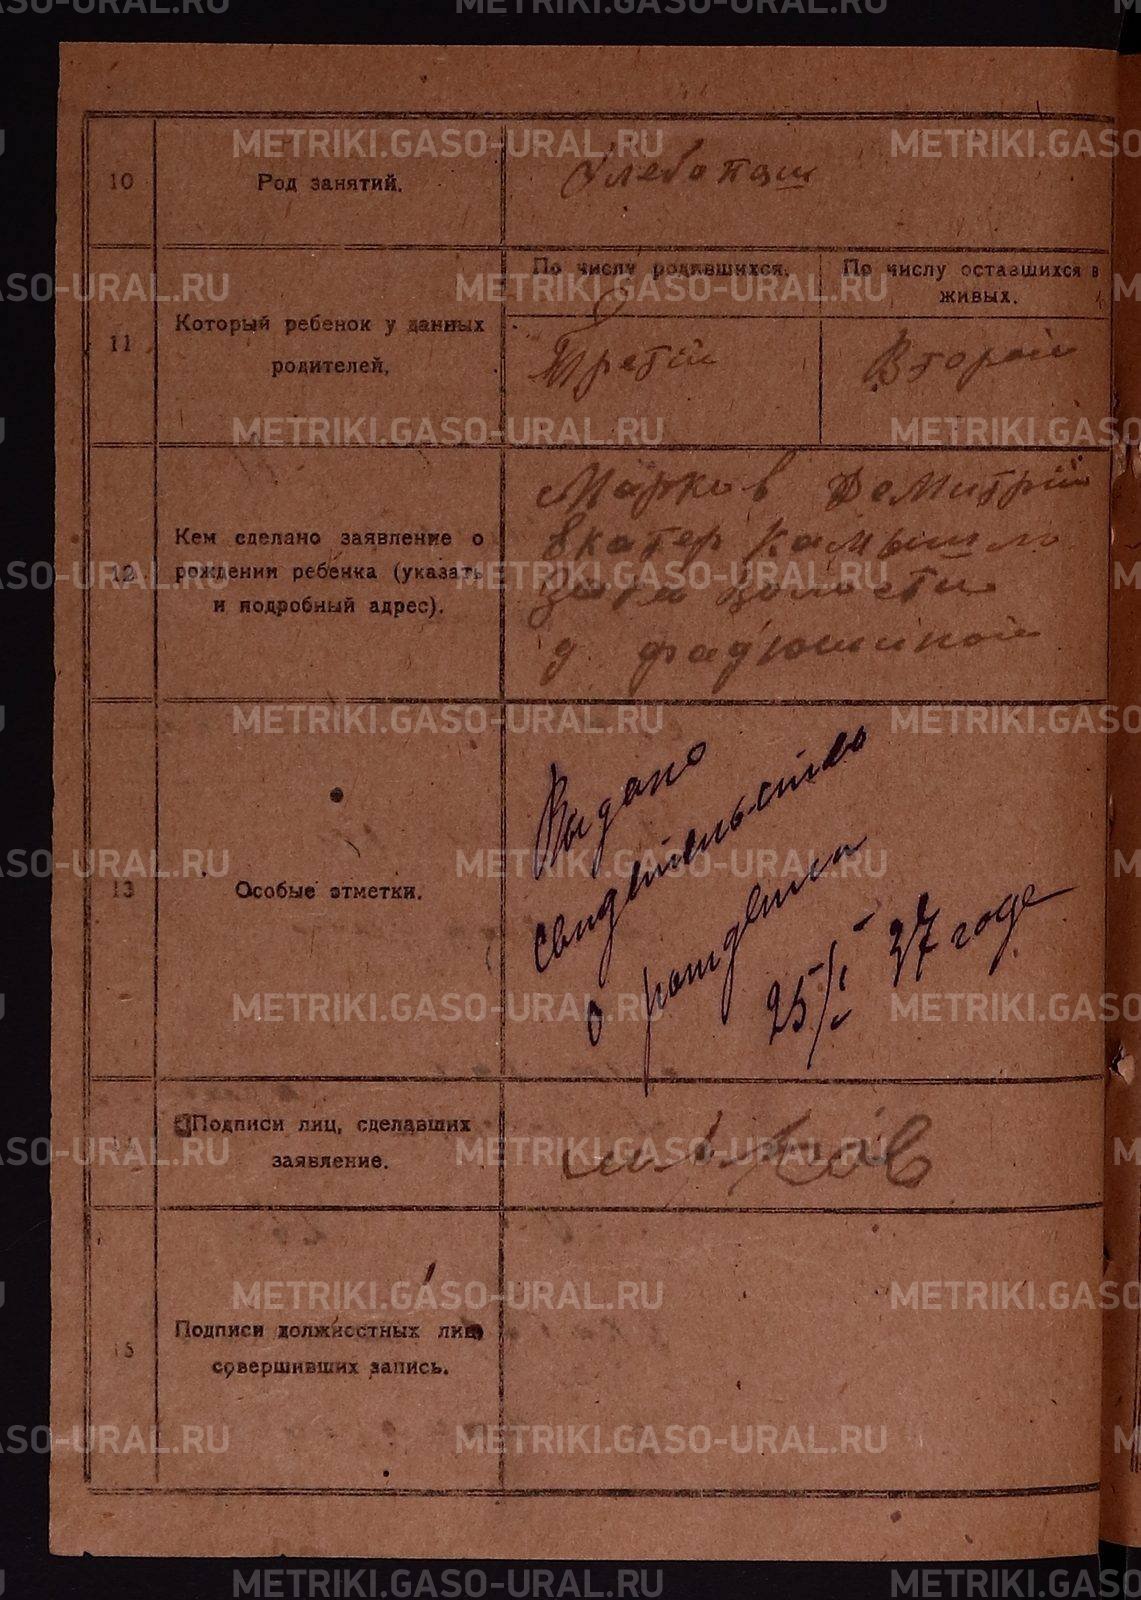 METRIKI.GASO-URAL.RU
10
Род занятий.
Хлебопаш
11
Который ребенок у данных
родителей.
По числу родившихся.
Третий
По числу оставшихся в
живых.
Второй
12
Кем сделано заявление о
рождении ребенка (указать
и подробный адрес).
Марков Демитрий
Екатер Камышло
волости
д. Фадюшиной
13
Особые отметки.
Выдано
свидетельство
о рождении
25/I - 37 годе
Подписи лиц, сделавших
заявление.
15
Подписи должностных лиц,
совершивших запись.